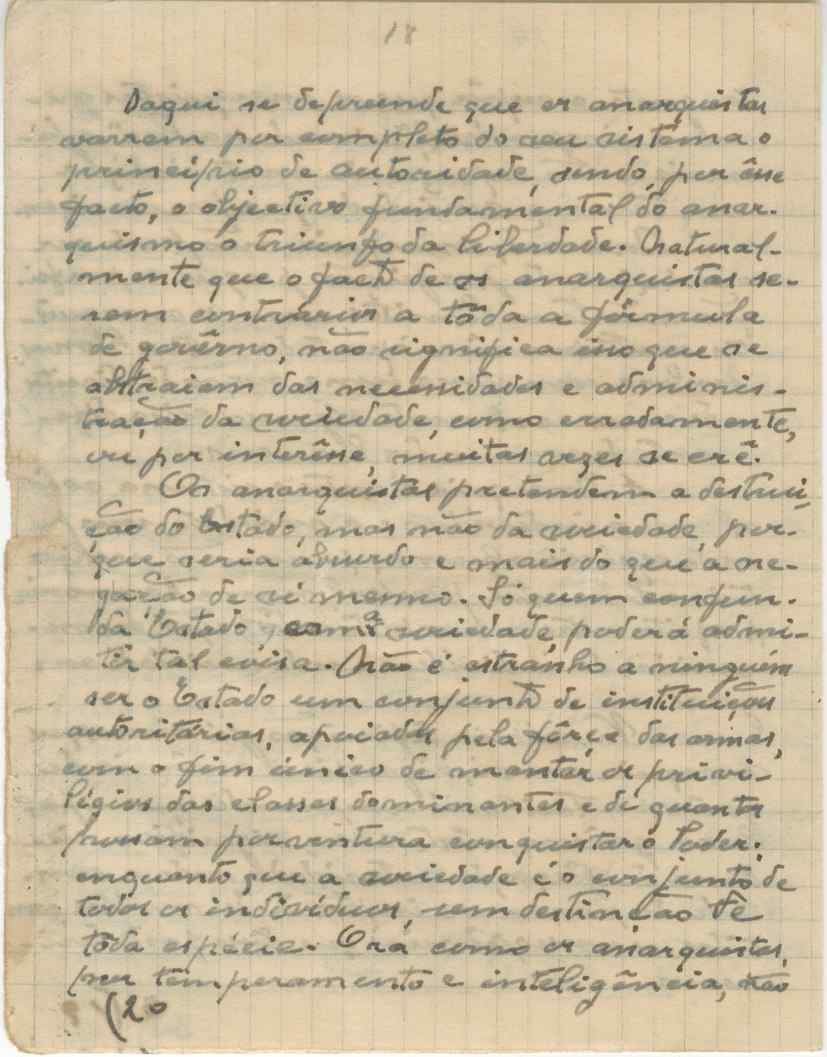 18
Daqui se depreende que os anarquistas
varrem por completo do seu sistema o
princípio de autoridade, sendo, por êsse
facto, o objectivo fundamental do anar-
quismo o triunfo da liberdade. Natural-
mente que o facto de os anarquistas se-
rem contrários a tôda a fórmula
de govêrno, não significa isso que se
abstraiem das necessidades e adminis-
tração da sociedade, como erradamente,
ou por interêsse, muitas vezes se crê.
Os anarquistas pretendem a destrui-
ção do Estado, mas não da sociedade, por-
que seria absurdo e mais do que a ne-
gação de si mesmo. Só quem confun-
da Estado, com a sociedade, poderá admi-
tir tal coisa. Não é estranho a ninguém
ser o Estado um conjunto de instituições
autoritárias, apoiadas pela fôrça das armas,
com o fim único de manter os privi-
légios das classes dominantes e de quantos
possam porventura conquistar o Poder;
enquanto que a sociedade é o conjunto de
todos os indivíduos, sem destinção de
tôda espécie. Ora como os anarquistas,
por temperamento e inteligência, não
(20